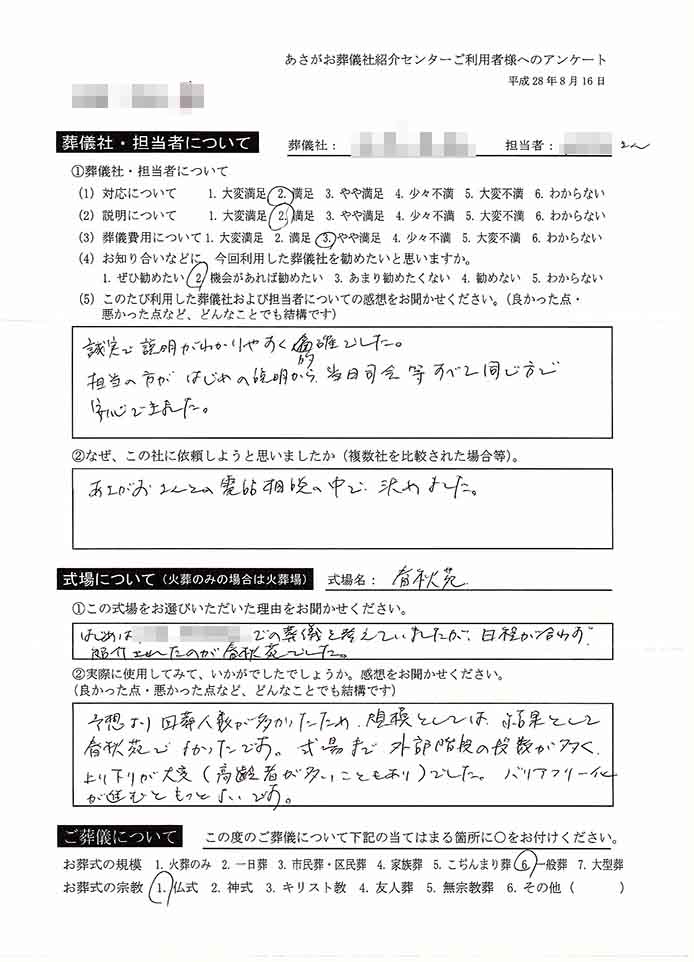 あさがお葬儀社紹介センターご利用者様へのアンケート
平成 28 年 8 月 16 日
葬儀社・担当者について 葬儀社： 担当者： さん
①葬儀社・担当者について
(1) 対応について 1. 大変満足 2. 満足 3. やや満足 4. 少々不満 5. 大変不満 6. わからない
(2) 説明について 1. 大変満足 2. 満足 3. やや満足 4. 少々不満 5. 大変不満 6. わからない
(3) 葬儀費用について 1. 大変満足 2. 満足 3. やや満足 4. 少々不満 5. 大変不満 6. わからない
(4) お知り合いなどに、今回利用した葬儀社を勧めたいと思いますか。
1. ぜひ勧めたい 2. 機会があれば勧めたい 3. あまり勧めたくない 4. 勧めない 5. わからない
(5) このたび利用した葬儀社および担当者についての感想をお聞かせください。（良かった点・
悪かった点など、どんなことでも結構です）
誠実で説明がわかりやすく的確でした。
担当の方がはじめの説明から、当日司会等すべて同じ方で
安心できました。
②なぜ、この社に依頼しようと思いましたか（複数社を比較された場合等）。
あさがおさんとの電話相談の中で決めました。
式場について（火葬のみの場合は火葬場） 式場名： 春秋苑
①この式場をお選びいただいた理由をお聞かせください。
はじめは での葬儀を考えていましたが、日程が合わず、
紹介されたのが春秋苑でした。
②実際に使用してみて、いかがでしたでしょうか。感想をお聞かせください。
（良かった点・悪かった点など、どんなことでも結構です）
予想より会葬人数が多かったため、規模としては、結果として
春秋苑でよかったです。式場まで外部階段の段数が多く、
上り下りが大変（高齢者が多いこともあり）でした。バリアフリー化
が進むともっとよいです。
ご葬儀について この度のご葬儀について下記の当てはまる箇所に○をお付けください。
お葬式の規模 1. 火葬のみ 2. 一日葬 3. 市民葬・区民葬 4. 家族葬 5. こぢんまり葬 6. 一般葬 7. 大型葬
お葬式の宗教 1. 仏式 2. 神式 3. キリスト教 4. 友人葬 5. 無宗教葬 6. その他（ ）